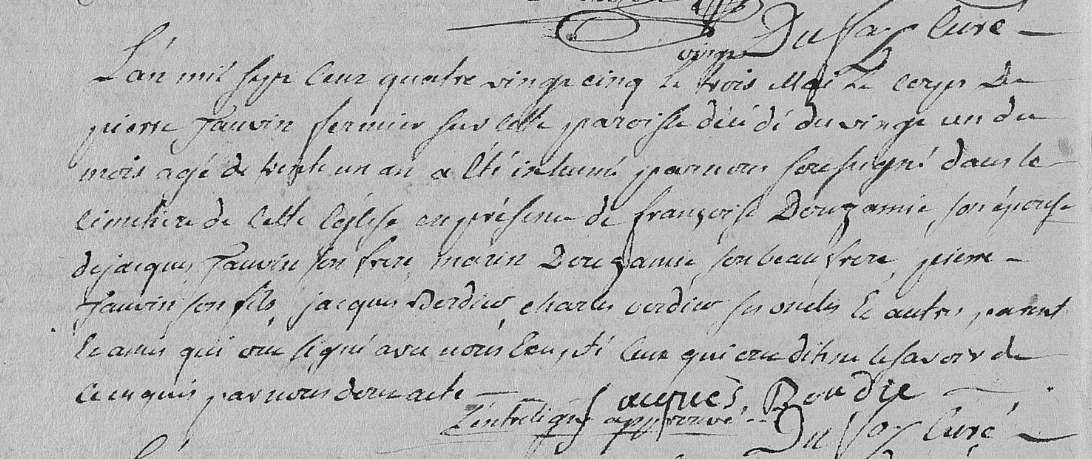 Dussay Curé
vingt
L'an mil sept cent quatre vingt cinq le trois Mai le corps de
pierre Fauvin fermier sur cette paroisse décédé du vingt un du
mois agé de trente un an a été inhumé par nous soussigné dans le
cimetiere de cette Eglise en présence de françoise Dougamie son épouse
de jacques Fauvin son frere, marin Dougamie son beau frere, pierre
Fauvin son fils, jacques Verdier, charles verdier ses oncles Et autres parent
Et amis qui ont signé avec nous Excepté ceux qui ont dit ne le savoir de
ce enquis par nous dont acte
jacques
L'interligne approuvé
Dussay Curé